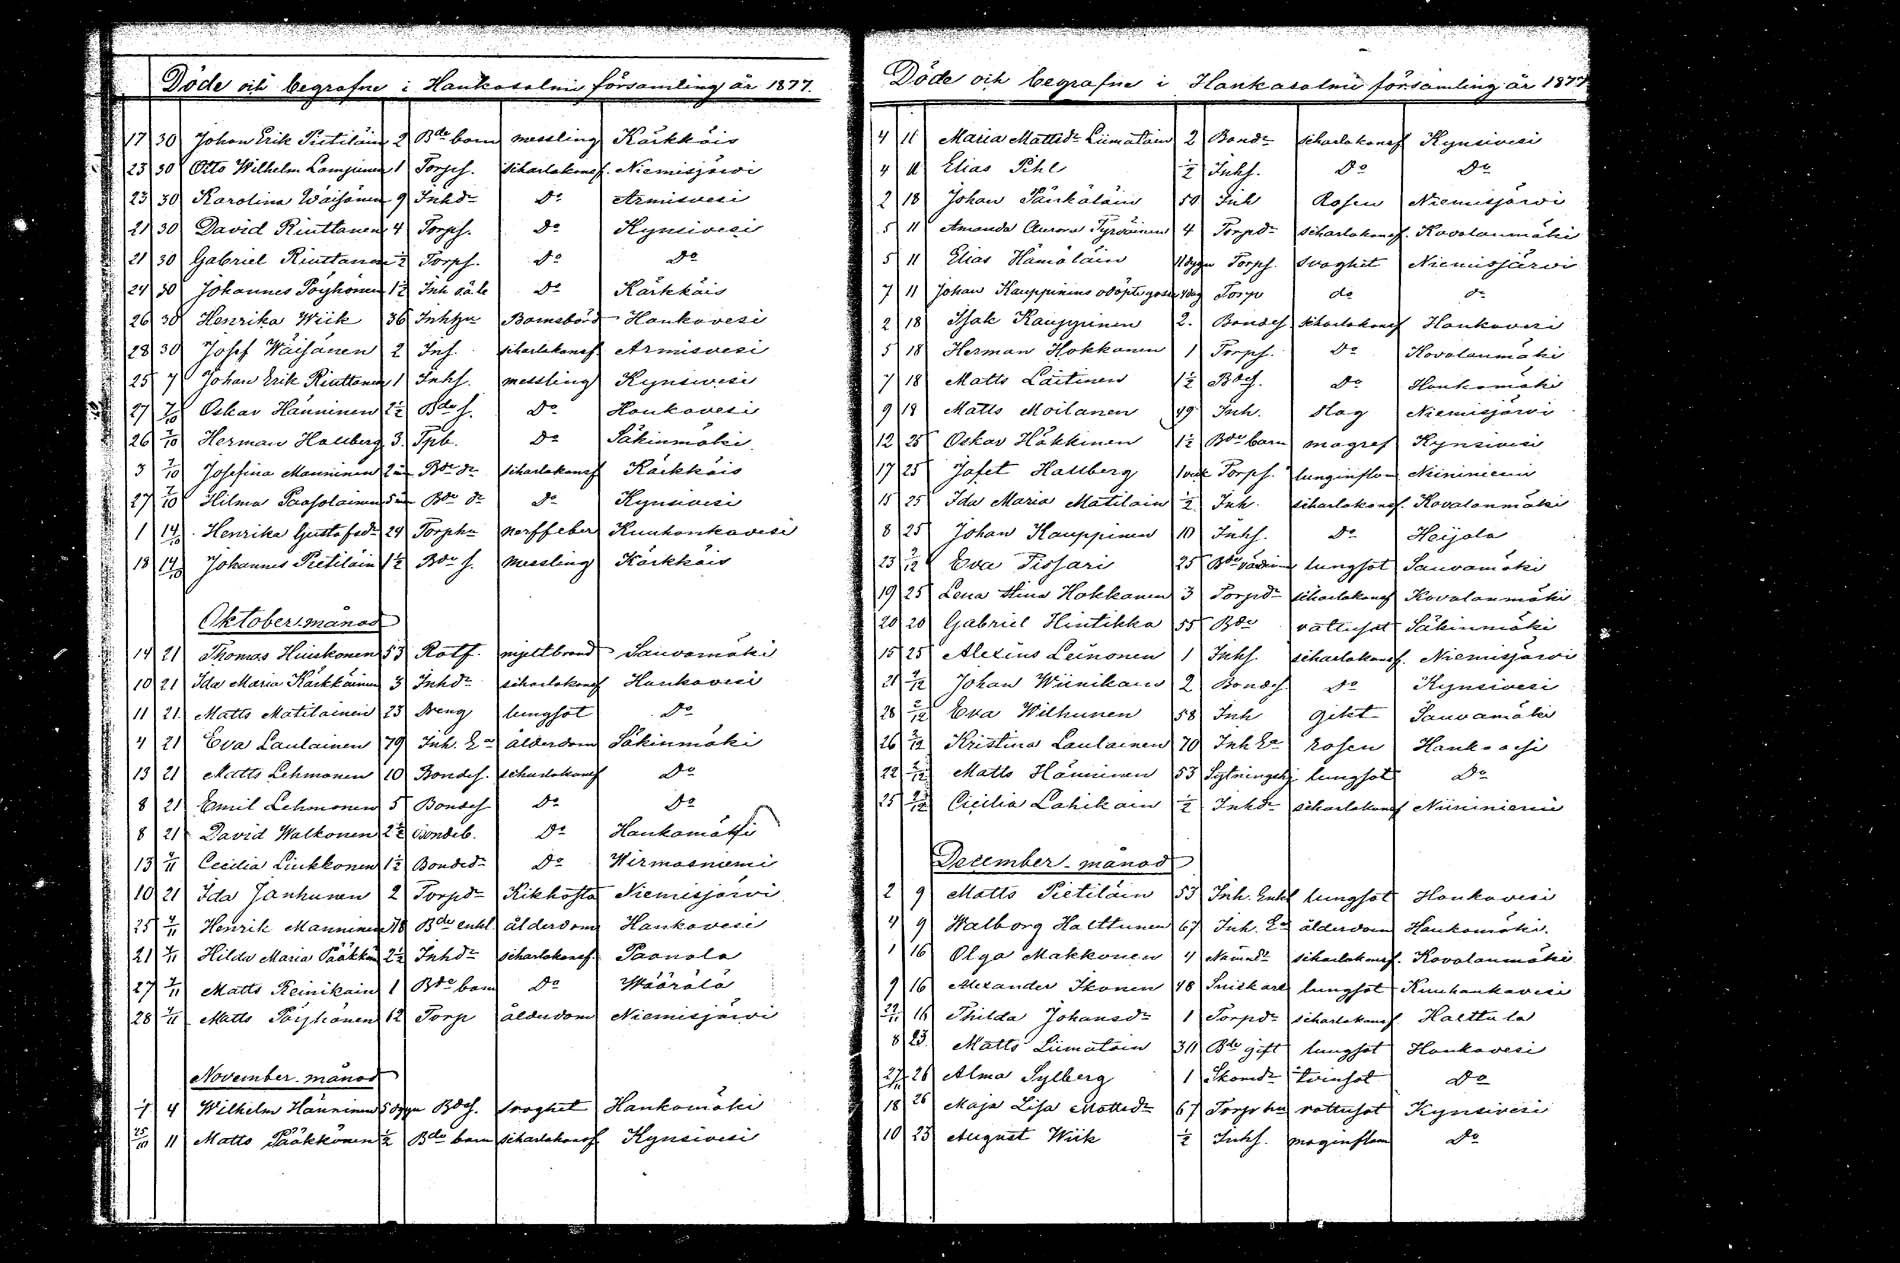 Döde och begrafne i Hankasalmi församling år 1877.
17 30 Johan Erik Pietiläin 2 Bde barn messling Kärkkäis
23 30 Otto Wilhelm Lampinen 1 Torps. scharlakansf. Niemisjärvi
23 30 Karolina Wäisänen 9 Inhdr Do Armisvesi
21 30 David Riuttanen 4 Torps. Do Kynsivesi
21 30 Gabriel Riuttanen ½ Torps. Do Do
24 30 Johannes Pöyhönen 1½ Inh Do Kärkkäis
26 30 Henrika Wiik 36 Barnsbörd Hankavesi
28 30 Josef Wäisänen 2 Ins. scharlakansf. Armisvesi
25 7 Johan Erik Riuttanen 1 Inhs. messling Kynsivesi
27 7/10 Oskar Hänninen 2½ Bde s. Do Hankavesi
26 7/10 Herman Hallberg 3. Tpb. Do Säkinmäki
3 7/10 Josefina Manninen 2 Bde dr scharlakansf Kärkkäis
27 7/10 Hilma Paasolainen 5 Bde dr Do Kynsivesi
1 14/10 Henrika Gustafsdr 24 Torphu nerffeber Kuuhankavesi
18 14/10 Johannes Pietiläin 1½ Bde s. messling Kärkkäis
Oktober månad
14 21 Thomas Hiuskonen 53 Rotf. mjeltbrand Sauvamäki
10 21 Ida Maria Kärkkäinen 3 Inhdr scharlakansf Hankavesi
11 21 Matts Matilainen 23 Dreng lungsot Do
4 21 Eva Laulainen 79 Inh. Ea ålderdom Säkinmäki
13 21 Matts Lehmonen 10 Bondes. scharlakansf Do
8 21 Emil Lehmonen 5 Bondes Do Do
8 21 David Walkonen 2½ Bondeb. Do Hankamäki
13 4/11 Cecilia Liukkonen 1½ Bondedr Do Wirmasniemi
10 21 Ida Janhunen 2 Torpdr Kikhosta Niemisjärvi
25 4/11 Henrik Manninen 78 Bde enkl. ålderdom Hankavesi
21 4/11 Hilda Maria Pääkkön 2½ Inhdr scharlakansf. Paanala
27 4/11 Matts Reinikain 1 Bde barn Do Wäärälä
28 4/11 Matts Pöyhönen 12 Torp ålderdom Niemisjärvi
November månad
1/ 4 Wilhelm Hänninen 5 dygn Bdes. svaghet Hankamäki
25/10 11 Matts Pääkkönen ½ Bde barn scharlakansf Kynsivesi
Döde och begrafne i Hankasalmi församling år 1877
4 11 Maria Mattsdr Liimatain 2 Bondr scharlakansf Kynsivesi
4 11 Elias Pihl ½ Inhs. Do Do
2 18 Johan Pänkäläin 50 Inh Rosen Niemisjärvi
5 11 Amanda Aurora Tyrväinen 4 Torpdr scharlakansf. Kovalanmäki
5 11 Elias Hämäläin 11 dygn Torps. svaghet Niemisjärvi
7 11 Johan Kauppinens odöpte gosse 4 dag Torp do do
2 18 Isak Kauppinen 2. Bondes. scharlakansf Hankavesi
5 18 Herman Hokkanen 1 Torps. Do Kovalanmäki
7 18 Matts Laitinen 1½ Bdes. Do Hankamäki
9 18 Matts Moilanen 49 Inh. slag Niemisjärvi
12 25 Oskar Häkkinen 1½ Bde barn magref Kynsivesi
17 25 Jafet Hallberg 1 vek Torps. lunginflam Niininiemi
15 25 Ida Maria Matilain ½ Inh. scharlakansf. Kovalanmäki
8 25 Johan Kauppinen 10 Inhs. Do Heijala
23 2/12 Eva Tissari 25 Bde värdinna lungsot Sauvamäki
19 25 Lena Stina Hokkanen 3 Torpdr scharlakansf Kovalanmäki
20 20 Gabriel Hintikka 55 Bde vattusot Säkinmäki
15 25 Alexius Leinonen 1 Inhs. scharlakansf. Niemisjärvi
21 2/12 Johan Wiinikain 2 Bondes. Do Kynsivesi
28 2/12 Eva Wilhunen 58 Inh gikt Sauvamäki
26 2/12 Kristina Laulainen 70 Inh Ea rosen Hankavesi
22 2/12 Matts Hänninen 53 Sytningshj lungsot Do
25 2/12 Cicilia Lahikain ½ Inhdr scharlakansf Niininiemi
December månad
2 9 Matts Pietiläin 53 Inh. Enkl lungsot Hankavesi
4 9 Walborg Halttunen 67 Inh. Ea ålderdom Hankamäki.
1 16 Olga Makkonen 4 Nämndr scharlakansf. Kovalanmäki
9 16 Alexander Ikonen 48 lungsot Kuuhankavesi
22/11 16 Thilda Johansdr 1 Torpdr scharlakansf. Halttula
8 23 Matts Liimatain 311 Bde gift lungsot Hankavesi
27/11 26 Alma Sylberg 1 Skomdr tvinsot Do
18 26 Maja Lisa Mattsdr 67 Torp hu vattusot Kynsivesi
10 23 August Wiik ½ Inhs. maginflam Do